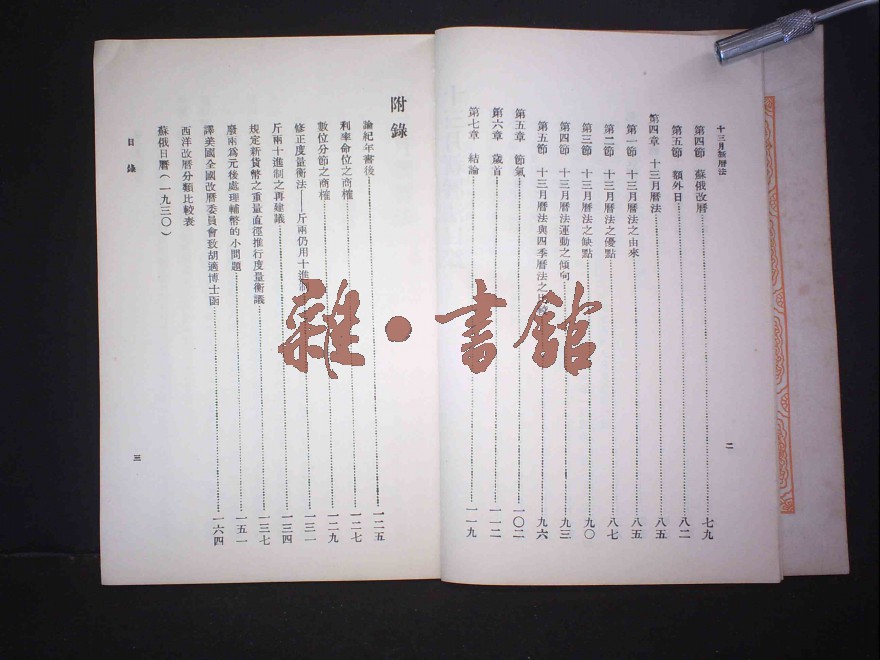 十三月新曆法
第四節　蘇俄改曆…………七九
第五節　額外日…………八二
第四章　十三月曆法…………八五
第一節　十三月曆法之由來…………八五
第二節　十三月曆法之優點…………八七
第三節　十三月曆法之缺點…………九〇
第四節　十三月曆法運動之傾向…………九三
第五節　十三月曆法與四季曆法之…………九六
第五章　節氣…………一〇二
第六章　歲首…………一一二
第七章　結論…………一一九
二
附錄
論紀年書後…………一二五
利率命位之商榷…………一二七
數位分節之商榷…………一二九
修正度量衡法——斤兩仍用十進制…………一三一
斤兩十進制之再建議…………一三四
規定新貨幣之重量直徑推行度量衡議…………一三七
廢兩爲元後處理輔幣的小問題…………一五一
譯美國全國改曆委員會致胡適博士函…………一六四
西洋改曆分類比較表
蘇俄日曆（一九三〇）
目錄
三
雜·書館